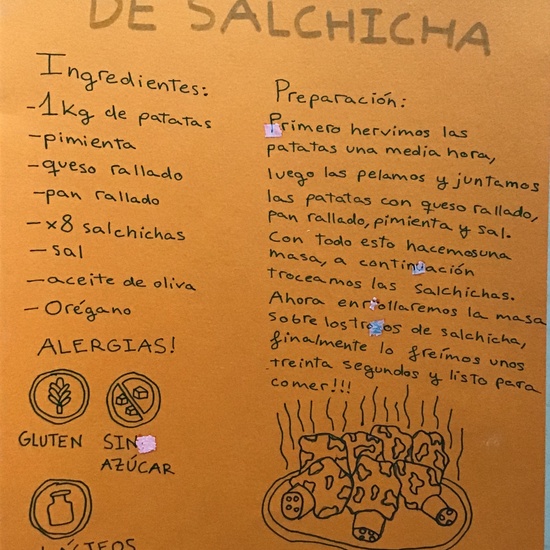 DE SALCHICHA
Ingredientes:
-1Kg de patatas
-pimienta
-queso rallado
-pan rallado
-x8 salchichas
-sal
-aceite de oliva
-Orégano
ALERGIAS!
GLUTEN SIN
AZÚCAR
LÁCTEOS
Preparación:
Primero hervimos las
patatas una media hora,
luego las pelamos y juntamos
las patatas con queso rallado,
pan rallado, pimienta y sal.
Con todo esto hacemosuna
masa, a continuación
troceamos las salchichas.
Ahora enrollaremos la masa
sobre lostrozos de salchicha,
finalmente lo freímos unos
treinta segundos y listo para
comer!!!